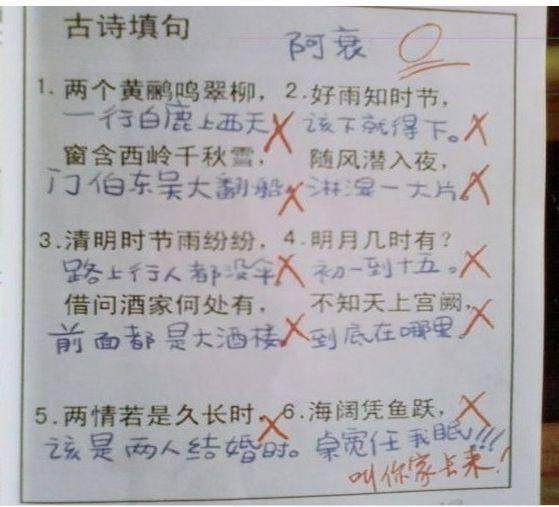 古诗填句
阿衰 0
1. 两个黄鹂鸣翠柳， 2. 好雨知时节，
一行白鹿上西天 该下就得下。
窗含西岭千秋雪， 随风潜入夜，
门伯东吴大翻船 淋湿一大片。
3. 清明时节雨纷纷， 4. 明月几时有？
路上行人都没伞 初一到十五。
借问酒家何处有， 不知天上宫阙，
前面都是大酒楼 到底在哪里
5. 两情若是久长时， 6. 海阔凭鱼跃，
该是两人结婚时。 桌宽任我眠!!!
叫你家长来！